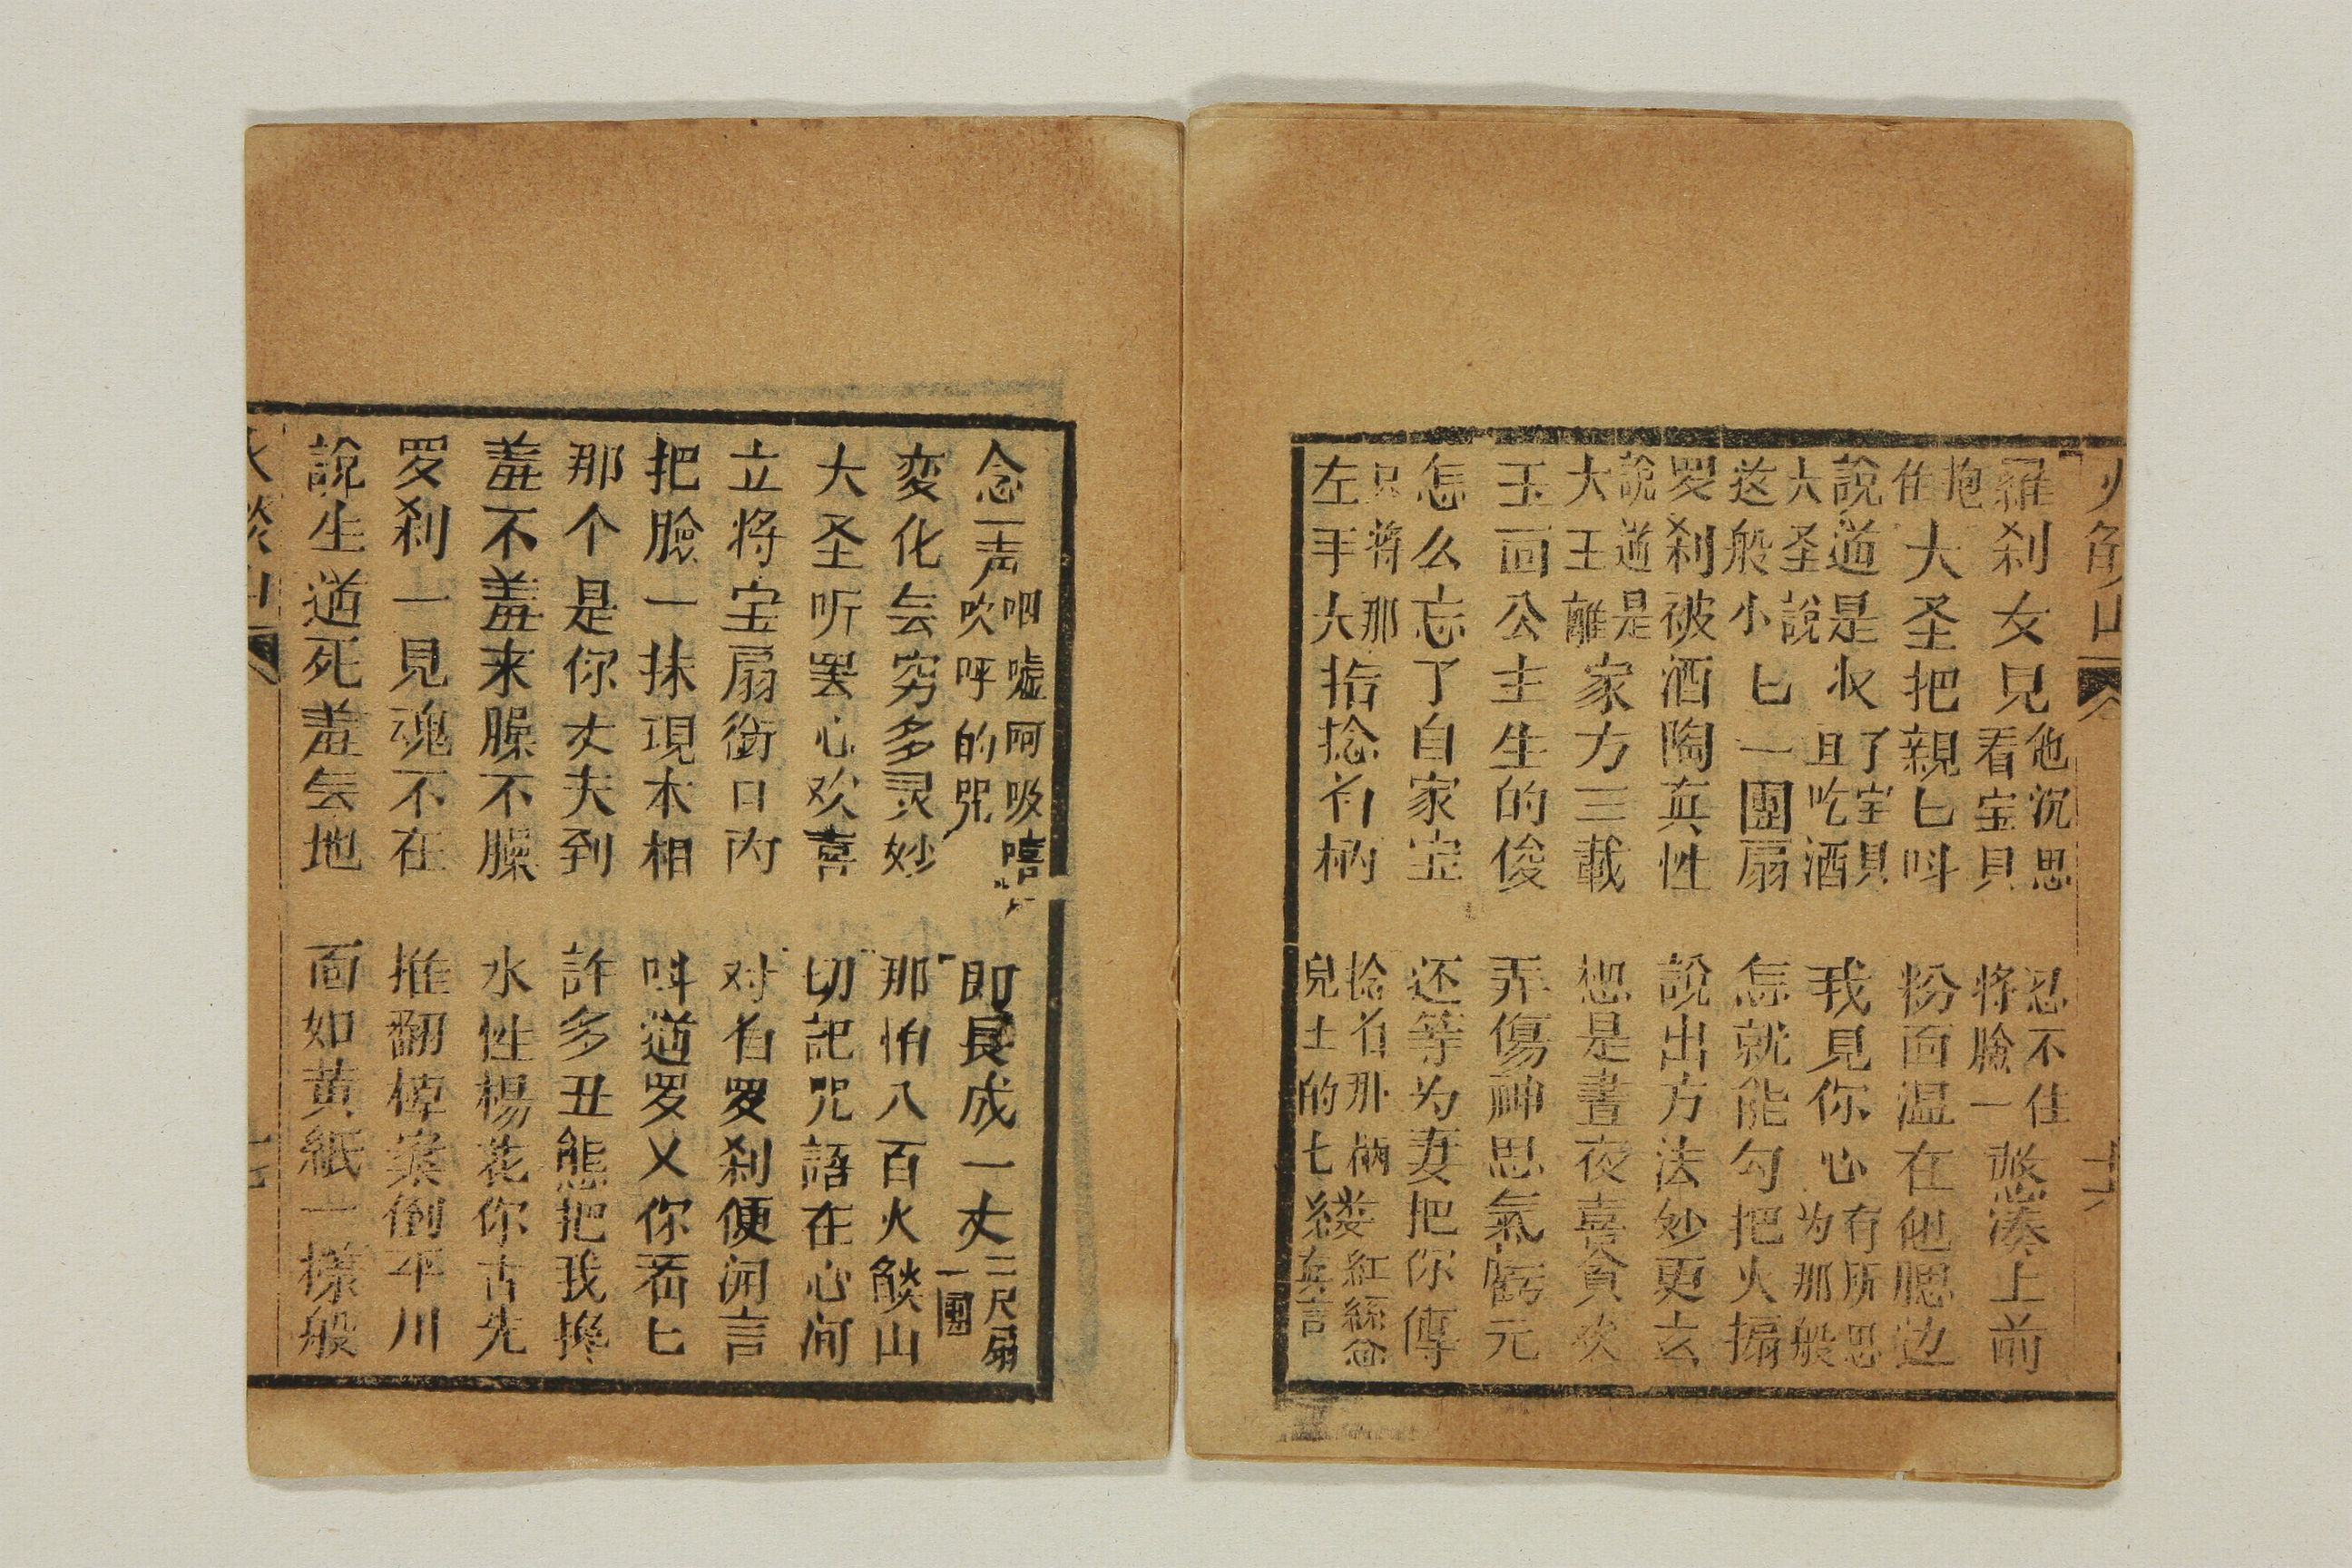 火焰山 十六
羅刹女見他沉思看宝貝 忍不住将臉一慾湊上前
抱伯大圣把親匕呌 粉面温在他腮边
說道是收了宝貝且吃酒 我見你心有所思为那般
大圣說这般小匕一團扇 怎就能勾把火搧
罗刹被酒陶真性 說出方法妙更玄
說道是大王離家方三載 想是晝夜喜貪欢
玉面公主生的俊 弄傷神思氣虧元
怎么忘了自家宝 还等为妻把你傳
只著那左手大指捻着柄 捻着那柄兒上的七縷紅絲念真言
念一声呬嘘呵吸嘻吹呼的咒 即長成一丈二尺扇一團
変化无穷多灵妙 那怕八百火燄山
大圣听罢心欢喜 切記咒語在心间
立将宝扇銜口内 对着罗刹便開言
把臉一抹現本相 呌道罗乂你看匕
那个是你丈夫到 許多丑態把我搀
羞不羞来臊不臊 水性楊花你占先
罗刹一見魂不在 推翻棹案倒平川
說生道死羞无地 面如黄紙一様般
火燄山